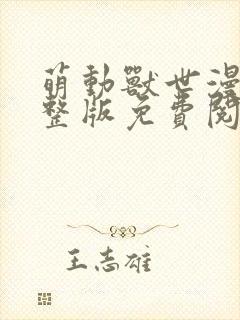 萌動獸世漫
整版免費閱
王志雄